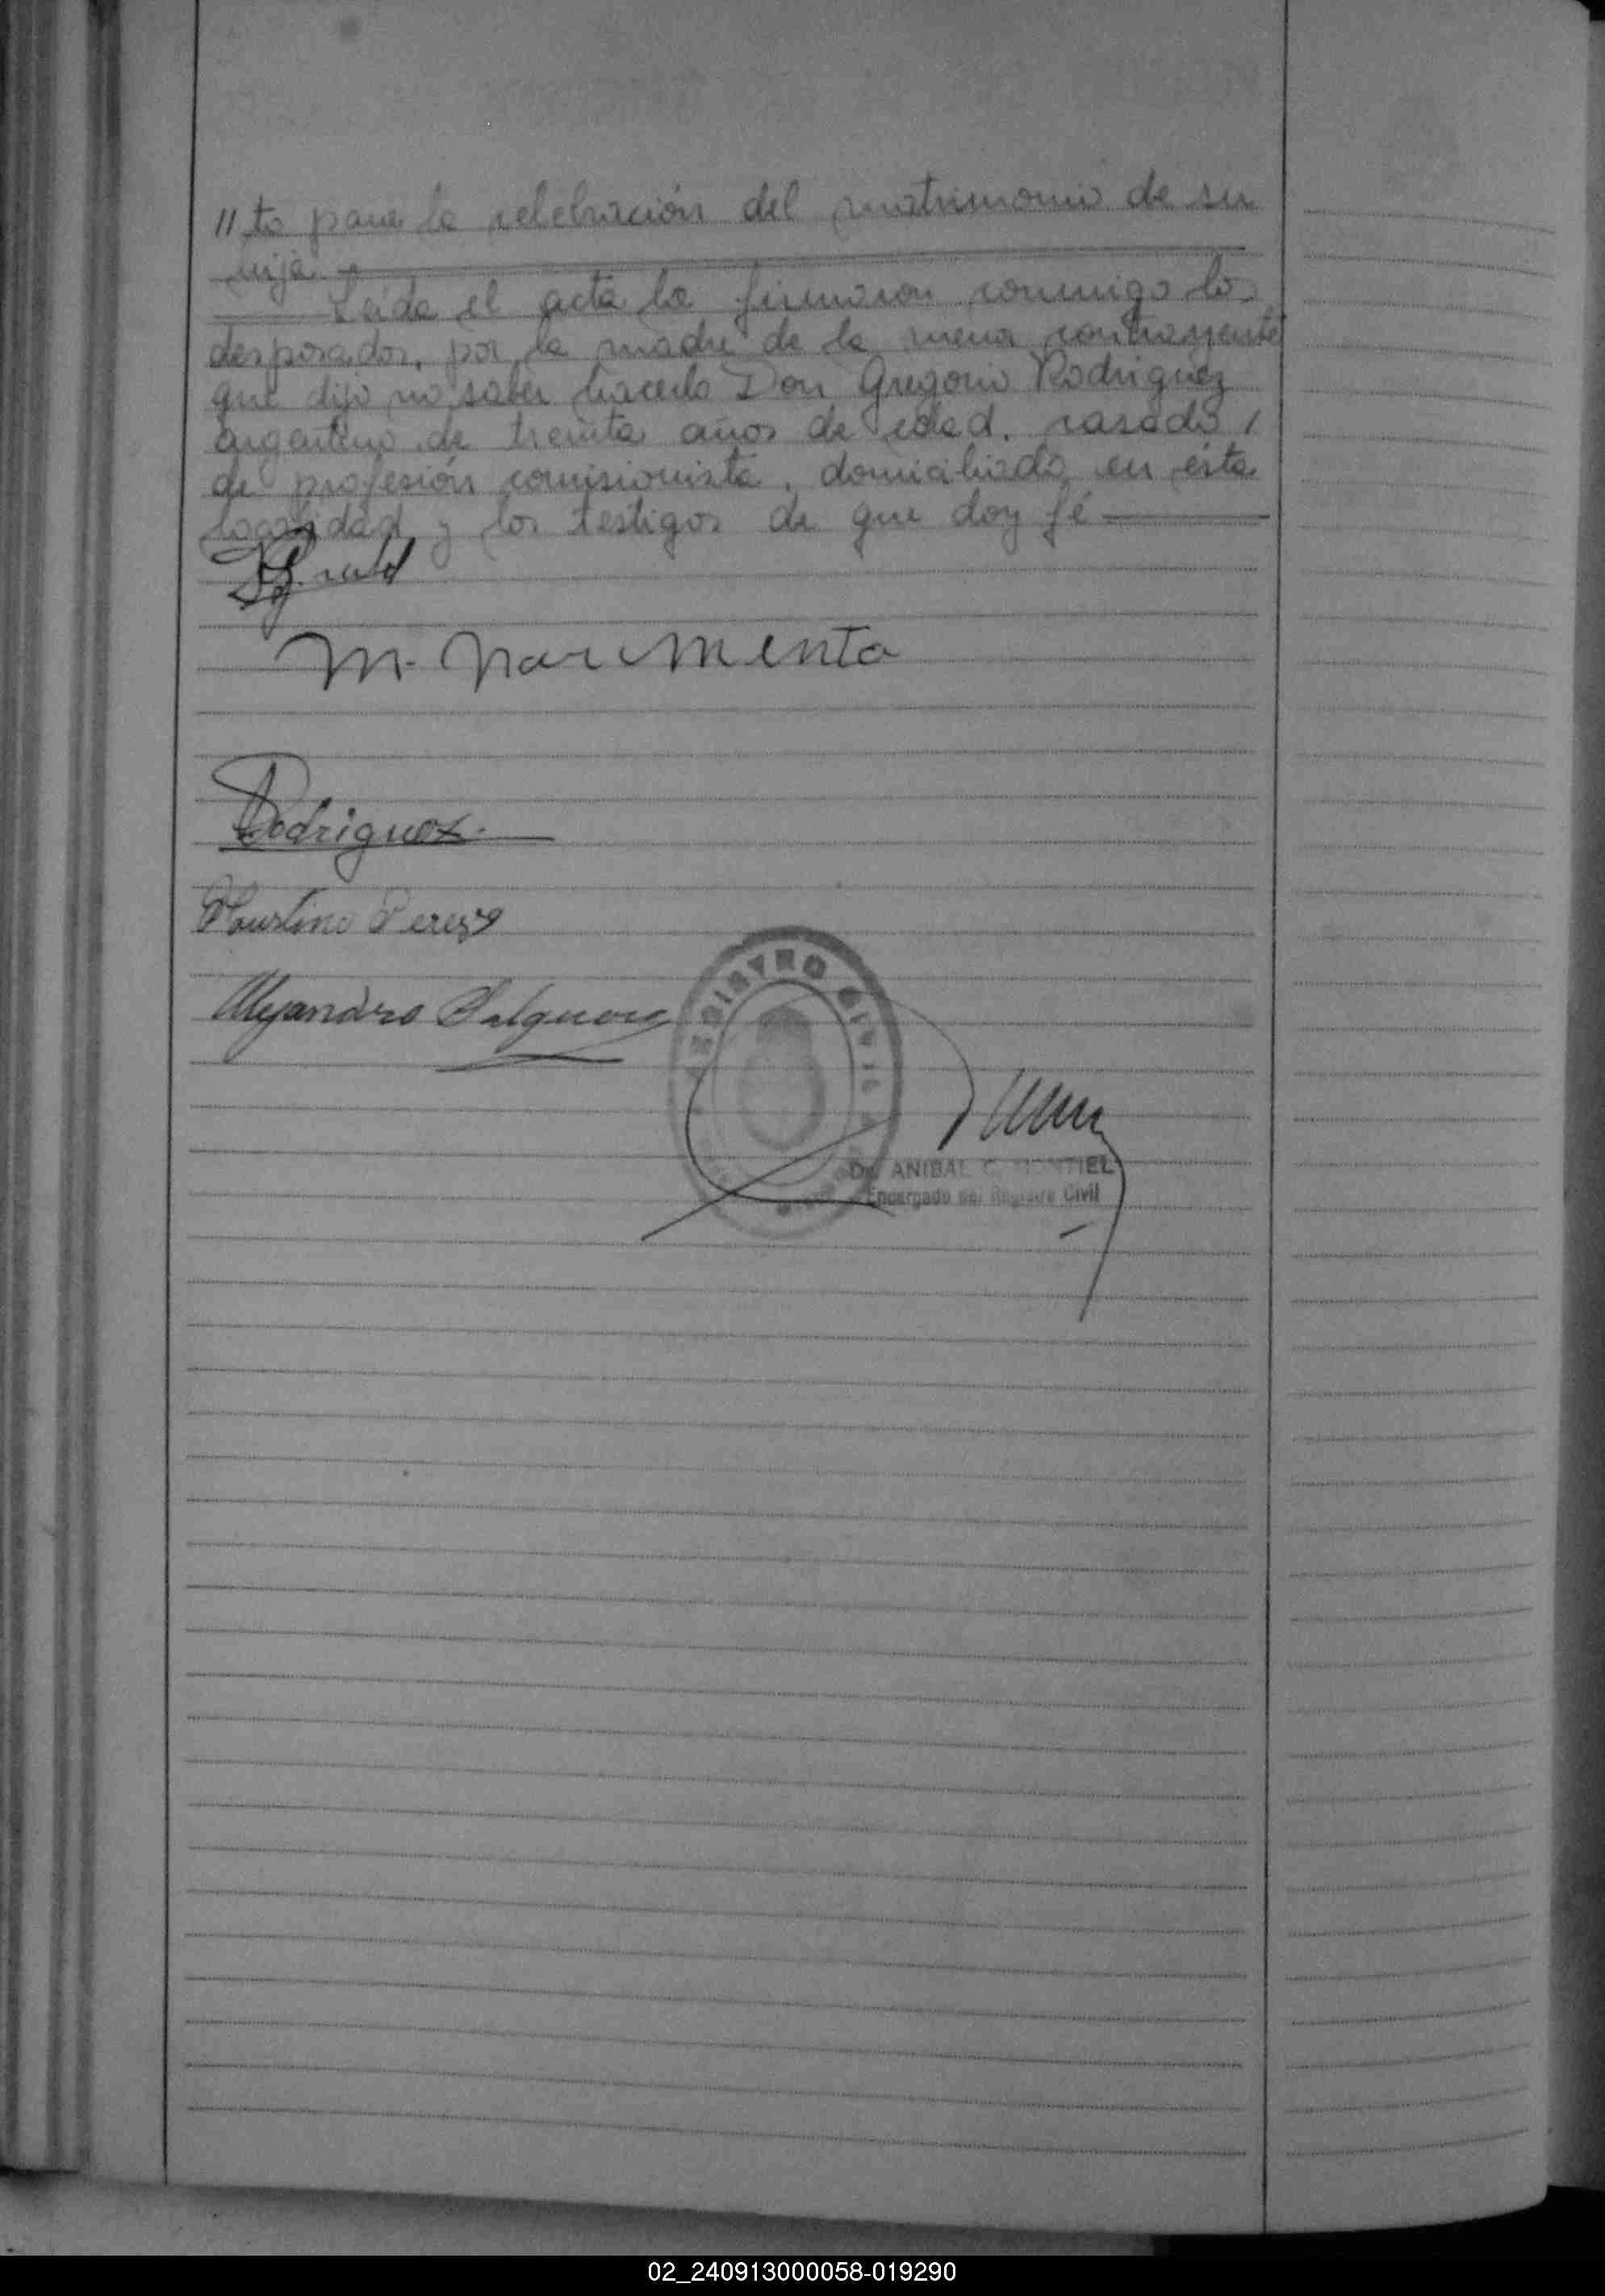 // to para la celebración del matrimonio de su
hija.
Leída el acta la firmaron conmigo los
desposados, por la madre de la menor contrayente
que dijo no saber hacerlo Don Gregorio Rodriguez
argentino de treinta años de edad, casado,
de profesión comisionista, domiciliado en ésta
localidad y los testigos de que doy fé
M. Nar menta
Rodriguez.
Faustino Perez
Alejandro Falguera
REGISTRO CIVIL
Dr. ANIBAL C. MONTIEL
Encargado del Registro Civil
02_240913000058-019290